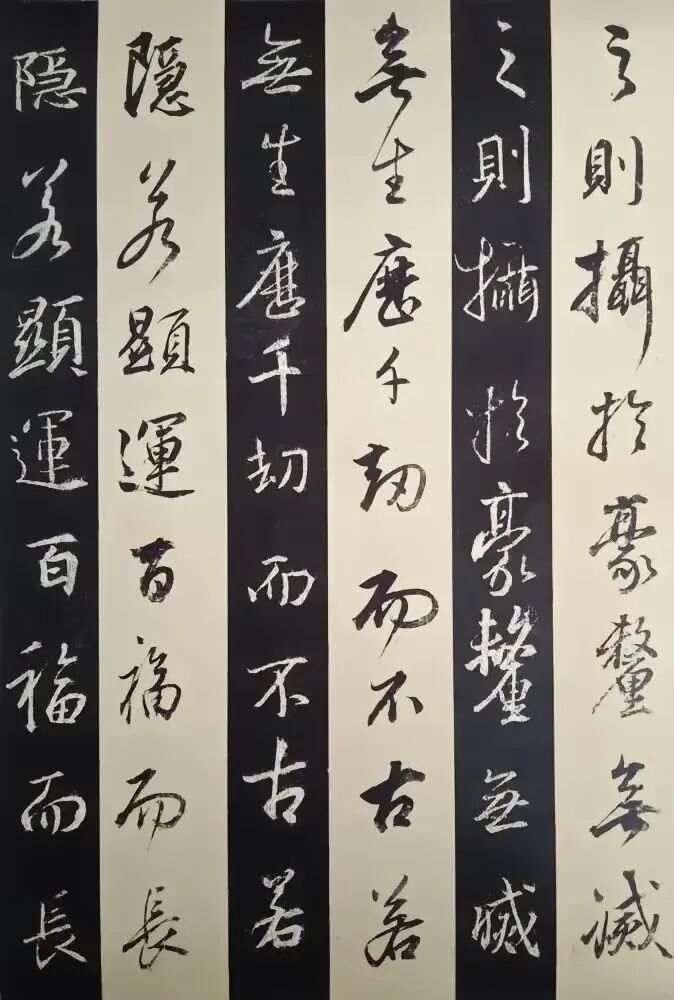 之則攝於豪釐無滅
之則攝於豪釐無滅
無生歷千劫而不古若
無生歷千劫而不古若
隱若顯運百福而長
隱若顯運百福而長